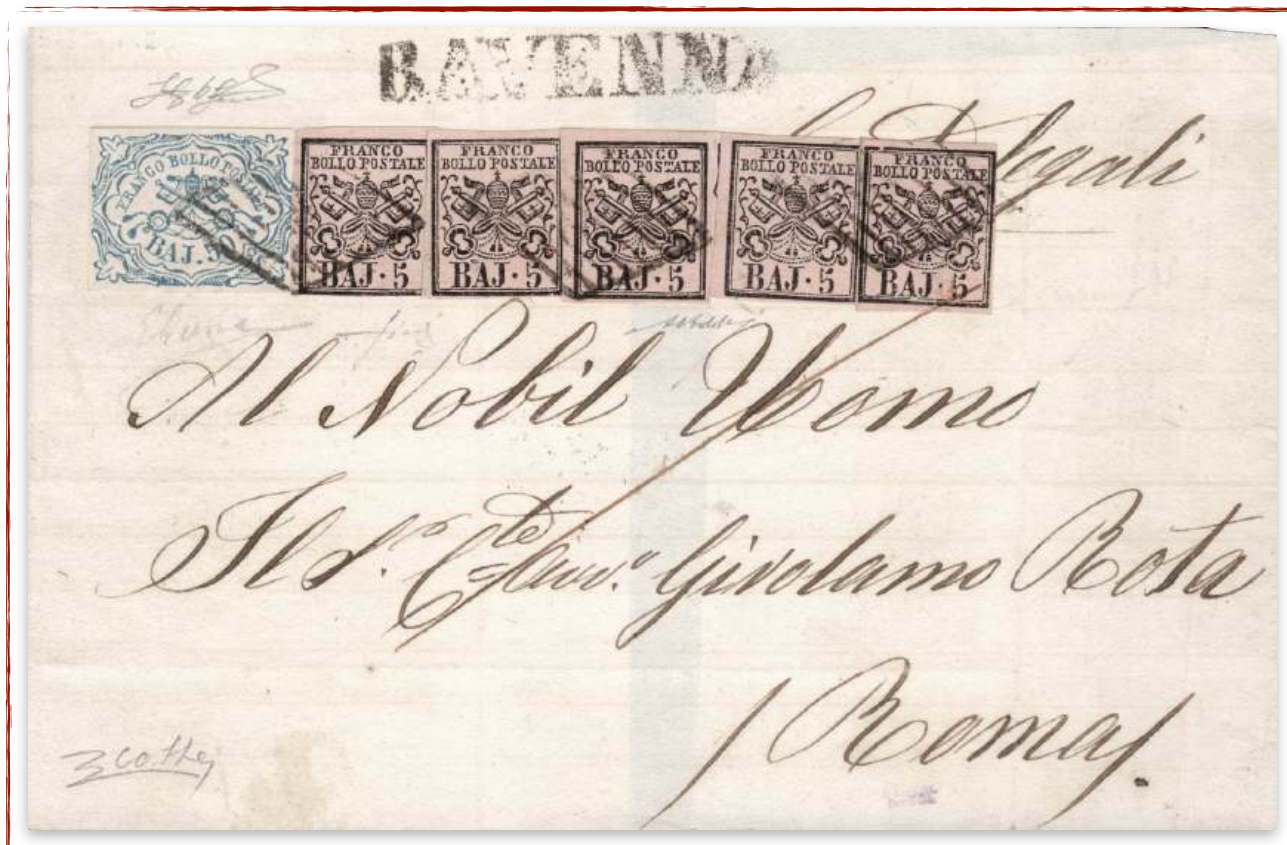 RAVENNA
Legali
FRANCO BOLLO POSTALE
BAJ. 50
FRANCO
BOLLO POSTALE
BAJ · 5
FRANCO
BOLLO POSTALE
BAJ · 5
FRANCO
BOLLO POSTALE
BAJ · 5
FRANCO
BOLLO POSTALE
BAJ · 5
FRANCO
BOLLO POSTALE
BAJ · 5
Al Nobil Uomo
Il Sr. Cte Cavr. Girolamo Rota
Roma